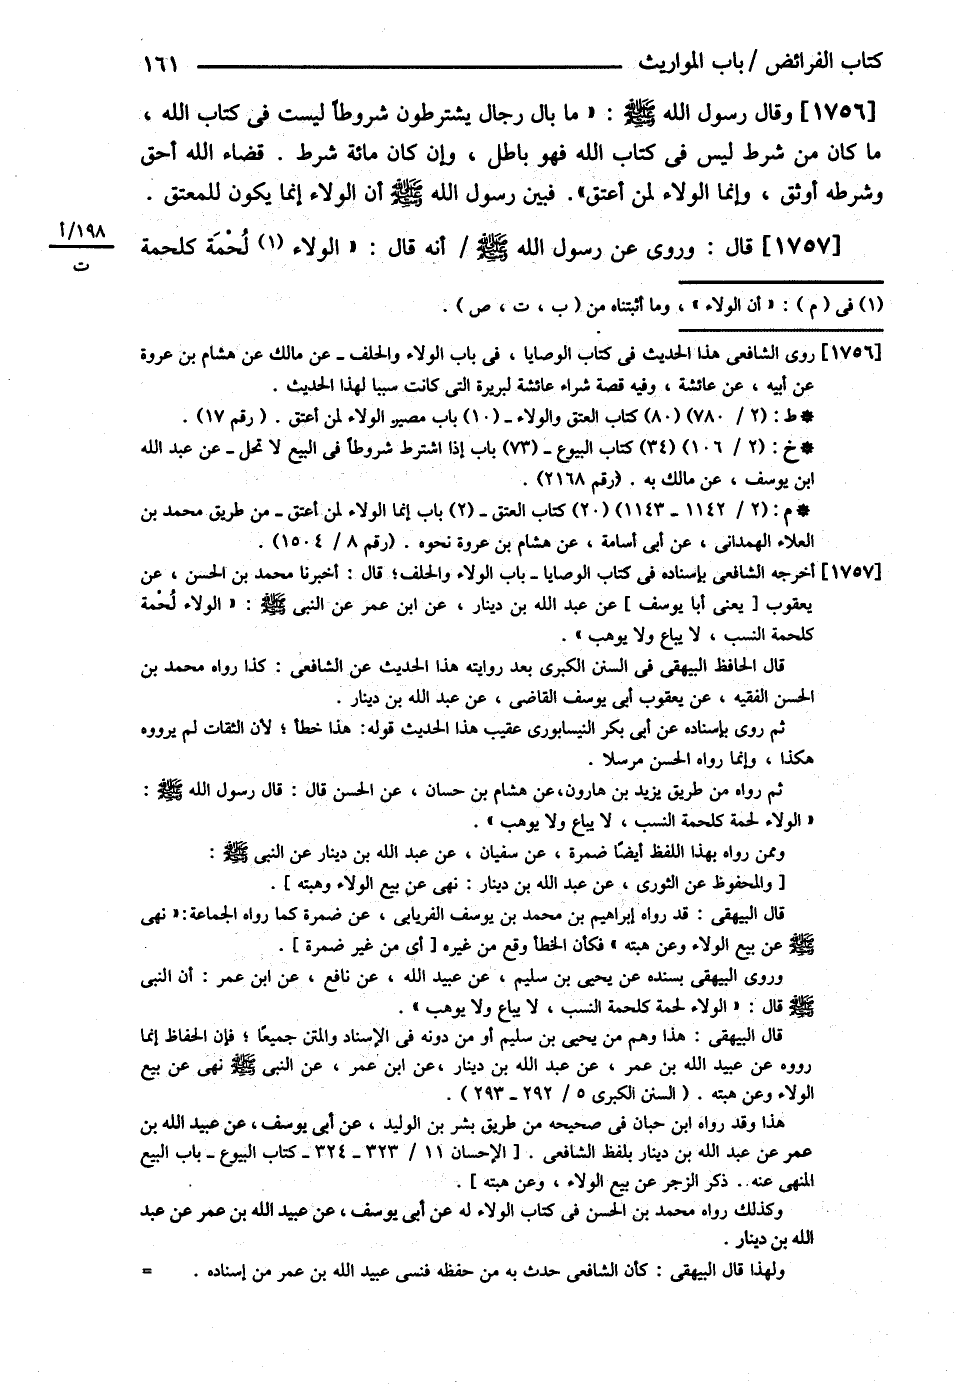 كتاب الفرائض / باب المواريث ــــــــــــــــــــــــــــــــ ١٦١
[١٧٥٦] وقال رسول الله ﷺ : « ما بال رجال يشترطون شروطاً ليست فى كتاب الله ،
ما كان من شرط ليس فى كتاب الله فهو باطل ، وإن كان مائة شرط . قضاء الله أحق
وشرطه أوثق ، وإنما الولاء لمن أعتق». فبين رسول الله ﷺ أن الولاء إنما يكون للمعتق .
١٩٨/أ
ت
[١٧٥٧] قال : وروى عن رسول الله ﷺ / أنه قال : « الولاء (١) لُحْمَة كلحمة
(١) فى ( م ) : « أن الولاء » ، وما أثبتناه من ( ب ، ت ، ص ) .
[١٧٥٦] روى الشافعى هذا الحديث فى كتاب الوصايا ، فى باب الولاء والحلف ـ عن مالك عن هشام بن عروة
عن أبيه ، عن عائشة ، وفيه قصة شراء عائشة لبريرة التى كانت سببا لهذا الحديث .
* ط : (٢ / ٧٨٠) (٨٠) كتاب العتق والولاء ـ (١٠) باب مصير الولاء لمن أعتق . ( رقم ١٧) .
* خ : (٢ / ١٠٦) (٣٤) كتاب البيوع ـ (٧٣) باب إذا اشترط شروطاً فى البيع لا تحل ـ عن عبد الله
ابن يوسف ، عن مالك به . (رقم ٢١٦٨) .
* م : (٢ / ١١٤٢ ـ ١١٤٣) (٢٠) كتاب العتق ـ (٢) باب إنما الولاء لمن أعتق ـ من طريق محمد بن
العلاء الهمدانى ، عن أبى أسامة ، عن هشام بن عروة نحوه . (رقم ٨ / ١٥٠٤) .
[١٧٥٧] أخرجه الشافعى بإسناده فى كتاب الوصايا ـ باب الولاء والحلف؛ قال : أخبرنا محمد بن الحسن ، عن
يعقوب [ يعنى أبا يوسف ] عن عبد الله بن دينار ، عن ابن عمر عن النبى ﷺ : « الولاء لُحْمة
كلحمة النسب ، لا يباع ولا يوهب » .
قال الحافظ البيهقى فى السنن الكبرى بعد روايته هذا الحديث عن الشافعى : كذا رواه محمد بن
الحسن الفقيه ، عن يعقوب أبى يوسف القاضى ، عن عبد الله بن دينار .
ثم روى بإسناده عن أبى بكر النيسابورى عقيب هذا الحديث قوله: هذا خطأ ؛ لأن الثقات لم يرووه
هكذا ، وإنما رواه الحسن مرسلا .
ثم رواه من طريق يزيد بن هارون،عن هشام بن حسان ، عن الحسن قال : قال رسول الله ﷺ :
« الولاء لحمة كلحمة النسب ، لا يباع ولا يوهب » .
وممن رواه بهذا اللفظ أيضًا ضمرة ، عن سفيان ، عن عبد الله بن دينار عن النبى ﷺ :
[ والمحفوظ عن الثورى ، عن عبد الله بن دينار : نهى عن بيع الولاء وهبته ] .
قال البيهقى : قد رواه إبراهيم بن محمد بن يوسف الفريابى ، عن ضمرة كما رواه الجماعة:« نهى
ﷺ عن بيع الولاء وعن هبته » فكأن الخطأ وقع من غيره [ أى من غير ضمرة ] .
وروى البيهقى بسنده عن يحيى بن سليم ، عن عبيد الله ، عن نافع ، عن ابن عمر : أن النبى
ﷺ قال : « الولاء لحمة كلحمة النسب ، لا يباع ولا يوهب » .
قال البيهقى : هذا وهم من يحيى بن سليم أو من دونه فى الإسناد والمتن جميعًا ؛ فإن الحفاظ إنما
رووه عن عبيد الله بن عمر ، عن عبد الله بن دينار ،عن ابن عمر ، عن النبى ﷺ نهى عن بيع
الولاء وعن هبته . ( السنن الكبرى ٥ / ٢٩٢ ـ ٢٩٣ ) .
هذا وقد رواه ابن حبان فى صحيحه من طريق بشر بن الوليد ، عن أبى يوسف، عن عبيد الله بن
عمر عن عبد الله بن دينار بلفظ الشافعى . [ الإحسان ١١ / ٣٢٣ ـ ٣٢٤ ـ كتاب البيوع ـ باب البيع
المنهى عنه.. ذكر الزجر عن بيع الولاء ، وعن هبته ] .
وكذلك رواه محمد بن الحسن فى كتاب الولاء له عن أبى يوسف، عن عبيد الله بن عمر عن عبد
الله بن دينار .
ولهذا قال البيهقى : كأن الشافعى حدث به من حفظه فنسى عبيد الله بن عمر من إسناده . =